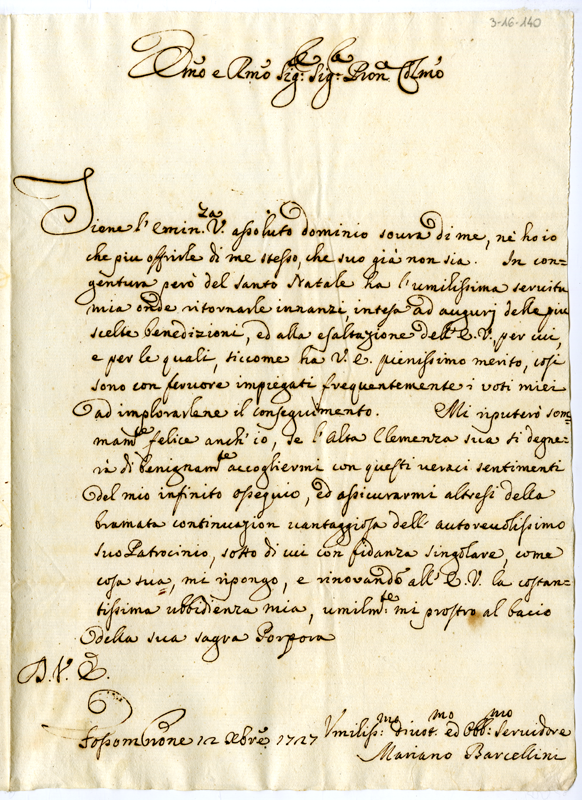 3-16-140
Emo e Rmo Sigr: Sigr: Pron Colmo
Tiene l'Emin.za V. assoluto dominio sovra di me, nè ho io
che piu offrirle di me stesso, che suo già non sia. In con=
gentura però del santo Natale ha l'umilissima servitù
mia onde ritornarle innanzi, intesa ad augurj delle più
scelte benedizioni, ed alla esaltazione dell'E.V. per cui,
e per le quali, siccome ha V.E. pienissimo merito, così
sono con fervore impiegati frequentemente i voti miei
ad implorarlene il conseguimento. Mi riputerò som=
mamte felice anch'io, se l'Alta Clemenza sua si degne=
rà di benignamte accogliermi con questi veraci sentimenti
del mio infinito ossequio, ed assicurarmi altresì della
bramata continuazion vantaggiosa dell'autorevolissimo
suo Patrocinio, sotto di cui con fidanza singolare, come
cosa sua, mi ripongo, e rinovando all'E.V. la costan=
tissima ubbidienza mia, umilmte mi prostro al bacio
della sua sagra Porpora
D.V.E.
Fossombrone 12 Xbre 1727
Vmiliss:mo divot:mo ed obb:mo servidore
Mariano Barcellini